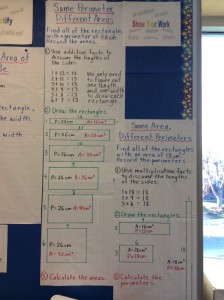 Same Perimeter,
Different Areas
Find all of the rectangles
with a perimeter of 26cm.
Record the areas.
① Use addition facts to
discover the lengths of
the sides.
1 + 12 = 13
2 + 11 = 13
3 + 10 = 13
4 + 9 = 13
5 + 8 = 13
6 + 7 = 13
We only need
to figure out
one length
and one width
to draw each
rectangle.
② Draw the rectangles
12
1 P=26cm A=12cm²
11
2 P=26cm A=22cm²
10
3 P=26cm A=30cm²
9
4 P=26cm A=36cm²
8
5 P=26cm
A=40cm²
7
6 P=26cm
A=42cm²
③ Calculate the areas.
Show Your Work
Area of
rectangle,
the width.
width
Same Area,
Different Perimeters
Find all of the rectangles
with an area of 18cm².
Record the perimeters.
① Use multiplication facts
to discover the lengths
of the sides.
1 x 18 = 18
2 x 9 = 18
3 x 6 = 18
② Draw the rectangles
9
2 A=18cm²
P=22cm
6
3 A=18cm²
P=18cm
1
18
A=18cm²
P=38cm
③ Calculate the
perimeters.